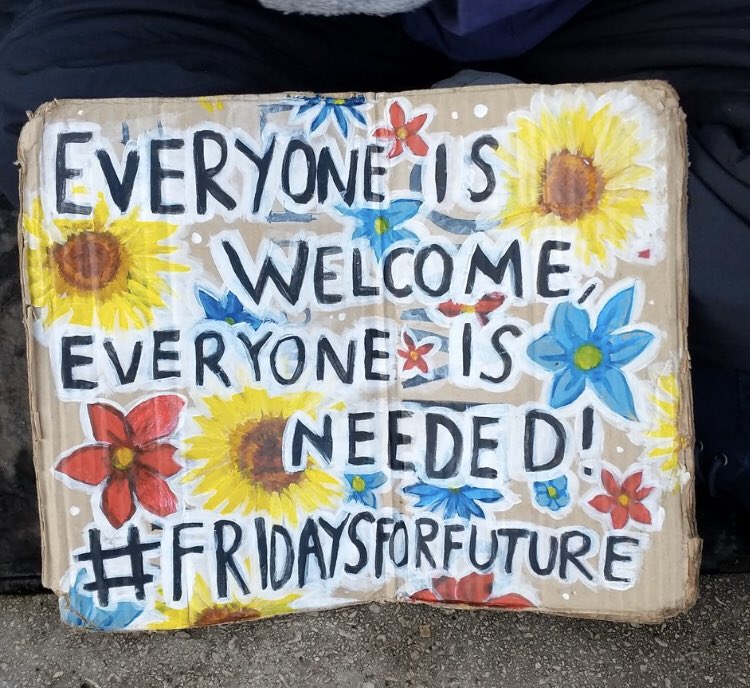 EVERYONE IS
WELCOME,
EVERYONE IS
NEEDED!
#FRIDAYSFORFUTURE